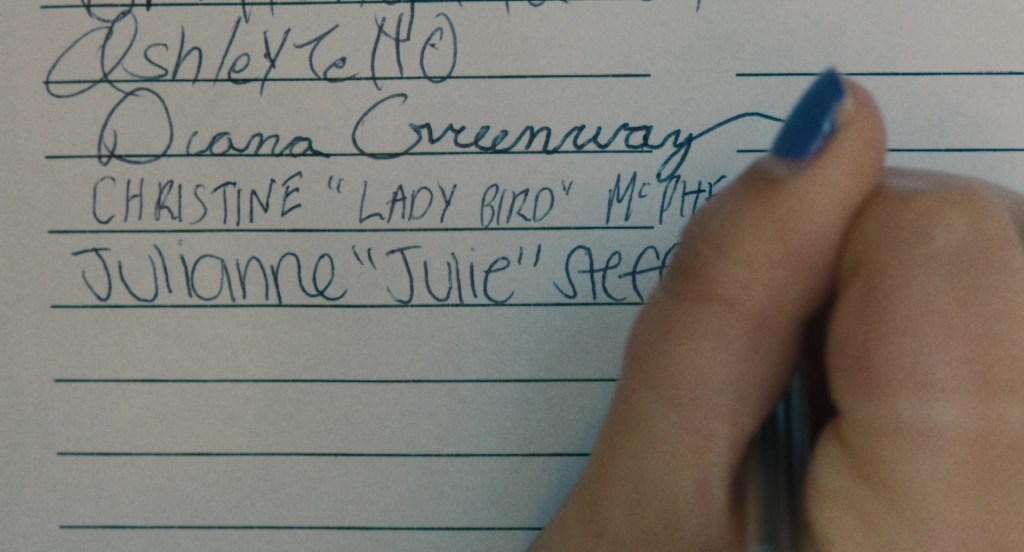 Ashley Tello
Diana Greenway
CHRISTINE "LADY BIRD" McPHE
Julianne "Julie" Steff